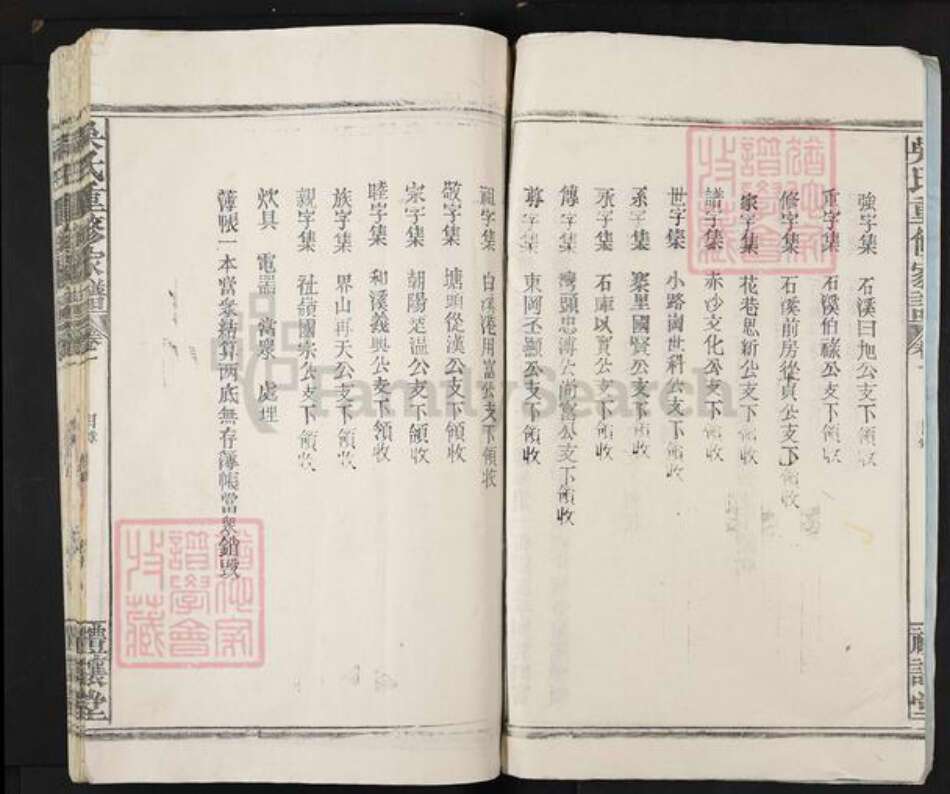 強字集 石溪日旭公支下領收
重字集 石溪伯祿公支下領收
修字集 石溪前房從貞公支下領收
家字集 花巷恩新公支下領收
譜字集 赤沙文化公支下領收
世字集 小路崗世科公支下領收
系字集 寨里國賢公支下領收
承字集 石庫以實公支下領收
傳字集 灣頭忠溥公尚富公支下領收
尊字集 東岡丕顯公支下領收
祖字集 白溪港用富公支下領收
敬字集 塘頭從漢公支下領收
宗字集 朝陽 溫公支下領收
睦字集 和溪義興公支下領收
族字集 界山再天公支下領收
親字集 社嶺國宗公支下領收
炊具 電器 當衆 處理
簿帳一本當衆結算两底無存簿帳當衆銷毀
吳氏重修家譜 卷一
目錄
禮讓堂
吳氏重修家譜 卷一
目錄
猶他家譜學會收藏
猶他家譜學會收藏
FamilySearch